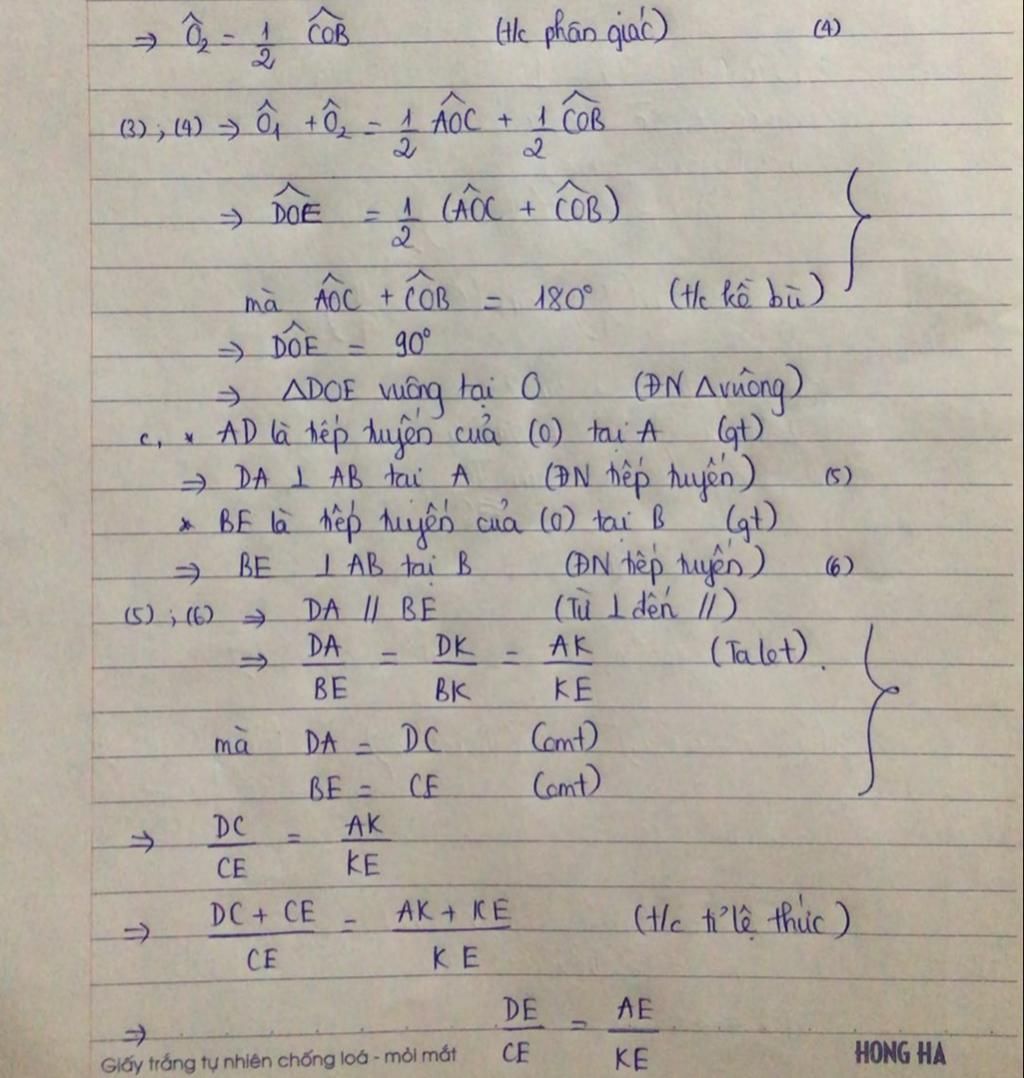 ⇒ Ô₂ = 1/2 CÔB (t/c phân giác) (4)
(3) ; (4) ⇒ Ô₁ + Ô₂ = 1/2 AÔC + 1/2 CÔB
⇒ DÔE = 1/2 (AÔC + CÔB)
mà AÔC + CÔB = 180° (t/c kề bù)
⇒ DÔE = 90°
⇒ ΔDOE vuông tại O (ĐN Δvuông)
c, * AD là tiếp tuyến của (O) tại A (gt)
⇒ DA ⊥ AB tại A (ĐN tiếp tuyến) (5)
* BE là tiếp tuyến của (O) tại B (gt)
⇒ BE ⊥ AB tại B (ĐN tiếp tuyến) (6)
(5) ; (6) ⇒ DA // BE (Từ ⊥ đến //)
⇒ DA/BE = DK/BK = AK/KE (Talet).
mà DA = DC (cmt)
BE = CE (cmt)
⇒ DC/CE = AK/KE
⇒ (DC + CE)/CE = (AK + KE)/KE (t/c tỉ lệ thức)
⇒ DE/CE = AE/KE
Giấy trắng tự nhiên chống loá - mỏi mắt HONG HA